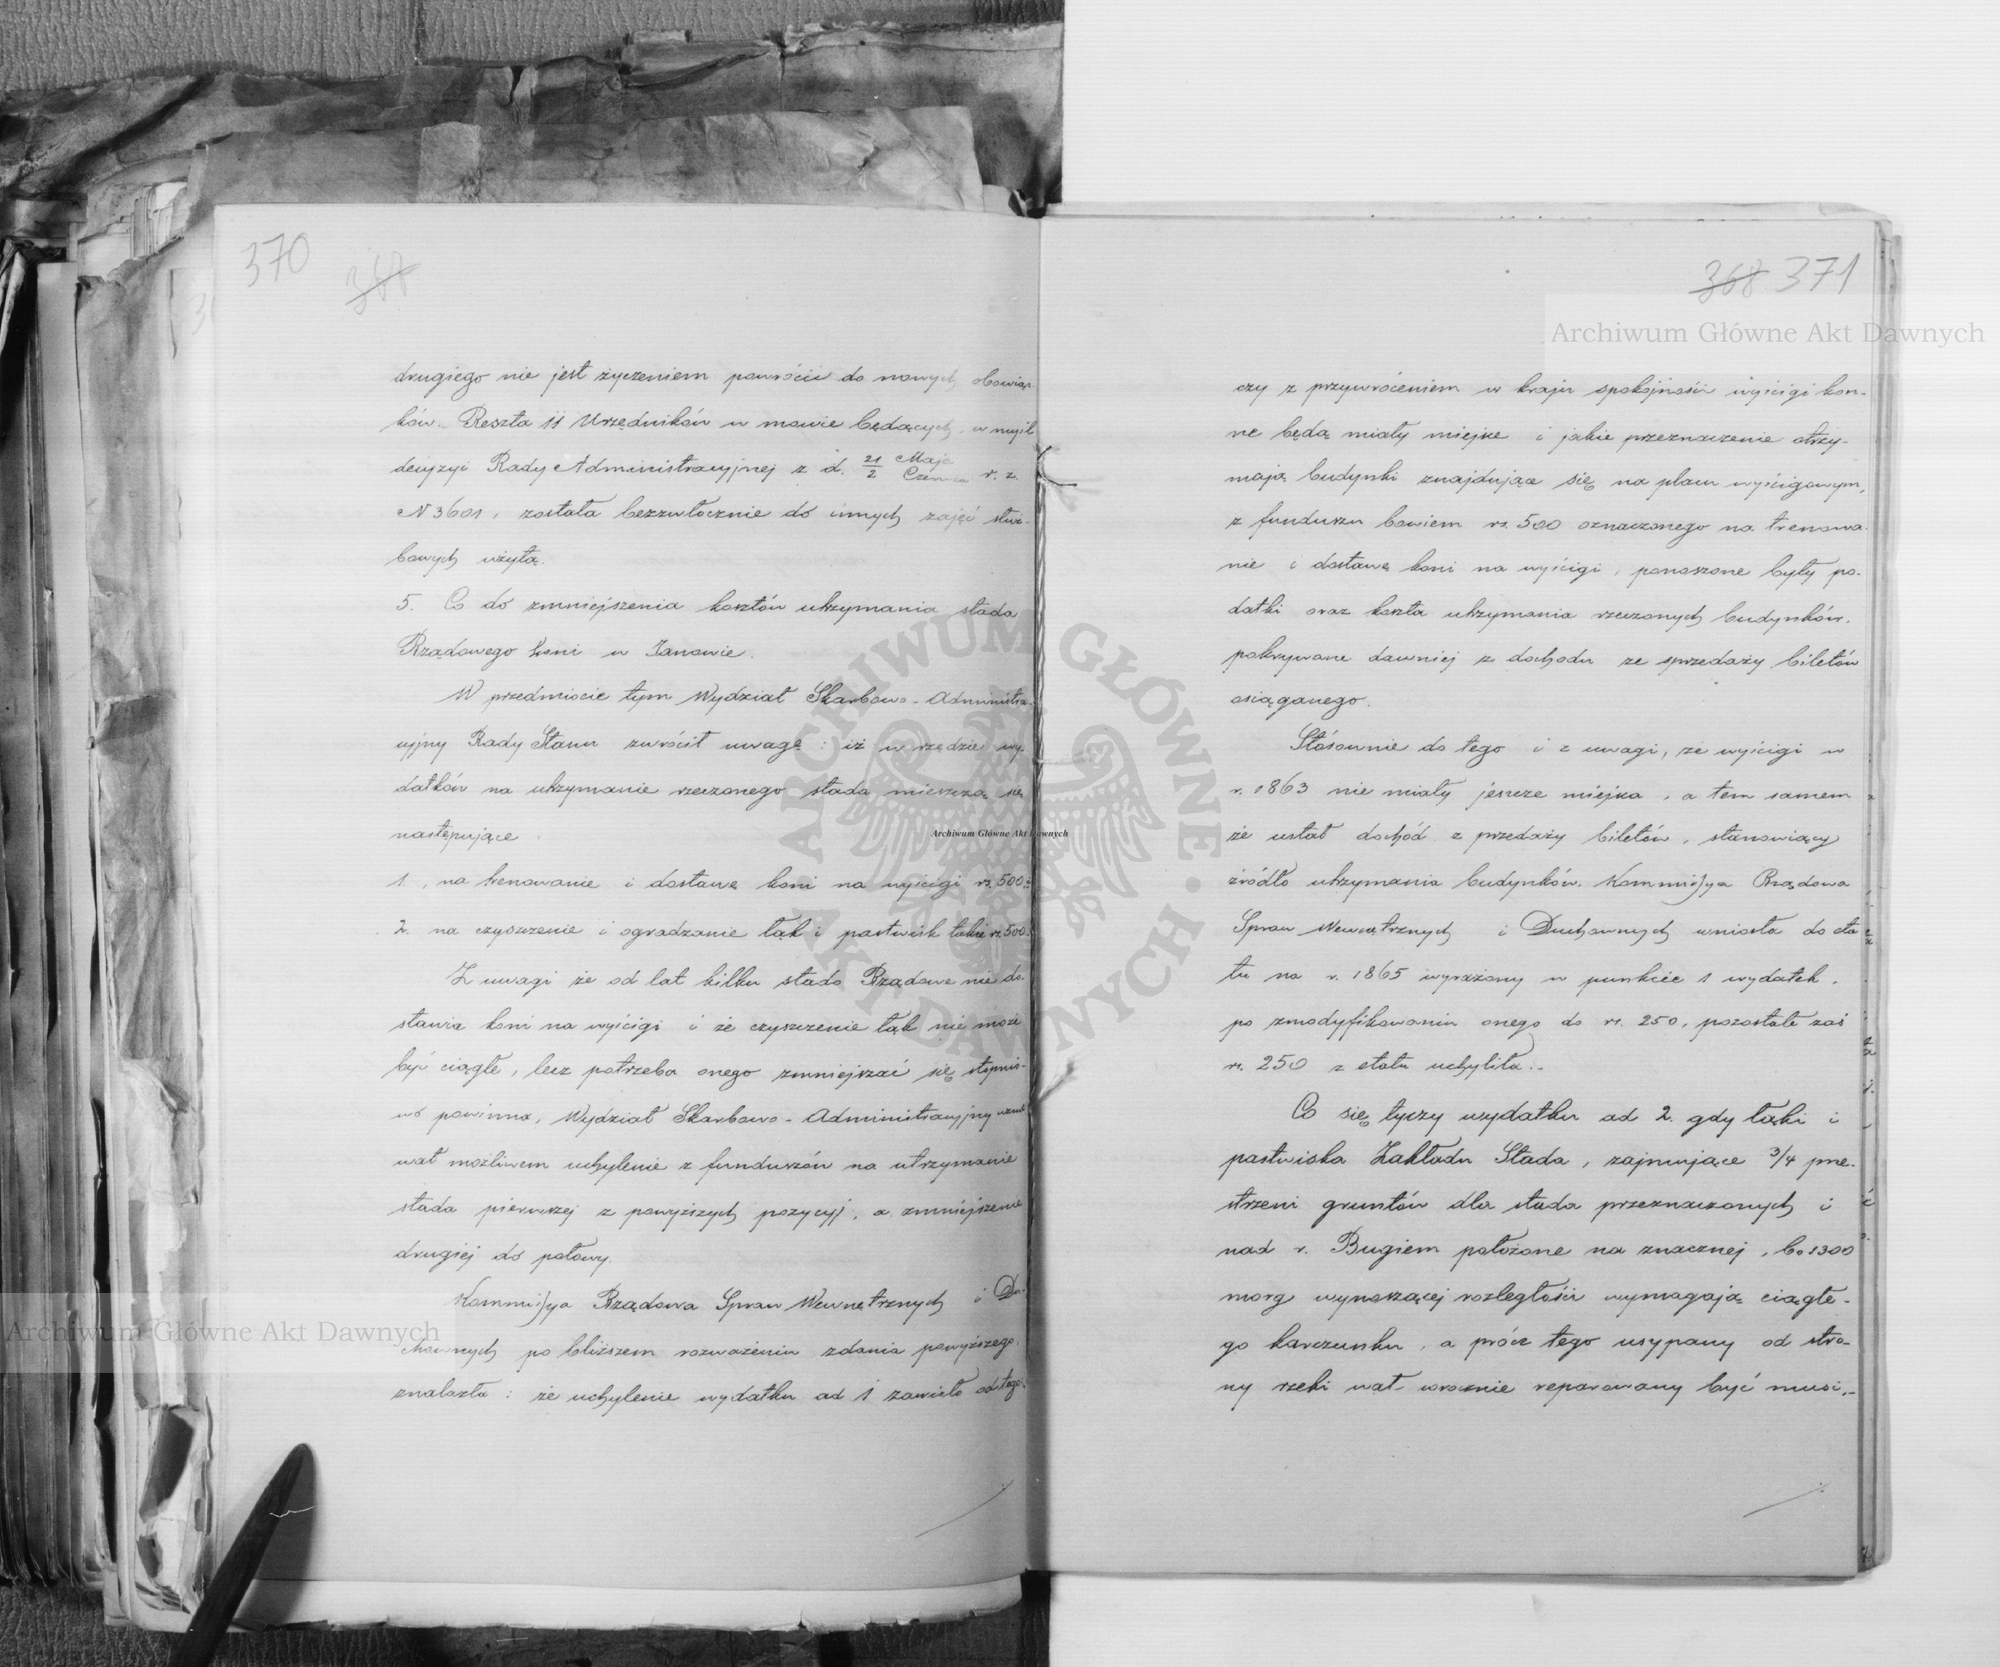 370 367
drugiego nie jest życzeniem powrócić do nowych obowiąz-
ków. Reszta 11 Urzędników w mowie będących, w myśl
decyzyi Rady Administracyjnej z d. 21/2 Maja/Czerwca r. z.
N 3601, została bezzwłocznie do innych zajęć służ-
bowych użytą.
5. Co do zmniejszenia kosztów utrzymania stada
Rządowego koni w Janowie.
W przedmiocie tym Wydział Skarbowo-Administra-
cyjny Rady Stanu zwrócił uwagę: iż w rzędzie wy-
datków na utrzymanie rzeczonego stada mieszczą się
następujące
1., na trenowanie i dostawę koni na wyścigi rs. 500:
2. na czyszczenie i ogradzanie łąk i pastwisk także rs. 500.
Z uwagi że od lat kilku stado Rządowe nie do-
stawia koni na wyścigi i że czyszczenie łąk nie może
być ciągłe, lecz potrzeba onego zmniejszać się stopnio-
wo powinna, Wydział Skarbowo-Administracyjny uzna-
wał możliwem uchylenie z funduszów na utrzymanie
stada pierwszej z powyższych pozycyj, a zmniejszenie
drugiej do połowy.
Kommissya Rządowa Spraw Wewnętrznych i Du-
chownych po bliższem rozważeniu zdania powyższego,
znalazła: że uchylenie wydatku ad 1 zawisło od tego,
368 371
czy z przywróceniem w kraju spokojności wyścigi kon-
ne będą miały miejsce i jakie przeznaczenie otrzy-
mają budynki znajdujące się na placu wyścigowym,
z funduszu bowiem rs. 500 oznaczonego na trenowa-
nie i dostawę koni na wyścigi, ponoszone były po-
datki oraz koszta utrzymania rzeczonych budynków,
pokrywane dawniej z dochodu ze sprzedaży biletów
osiąganego.
Stósownie do tego i z uwagi, że wyścigi w
r. 1863 nie miały jeszcze miejsca, a tem samem
że ustał dochód z przedaży biletów, stanowiący
źródło utrzymania budynków. Kommissya Rządowa
Spraw Wewnętrznych i Duchownych wniosła do eta-
tu na r. 1865 wyrażony w punkcie 1 wydatek,
po zmodyfikowaniu onego do rs. 250, pozostałe zaś
rs. 250 z etatu uchyliła.-
Co się tyczy wydatku ad 2. gdy łąki i
pastwiska Zakładu Stada, zajmujące 3/4 prze-
strzeni gruntów dla stada przeznaczonych i
nad r. Bugiem położone na znacznej, bo 1300
morg wynoszącej rozległości wymagają ciągłe-
go karczunku, a prócz tego usypany od stro-
ny rzeki wał corocznie reparowany być musi,-
Archiwum Główne Akt Dawnych
Archiwum Główne Akt Dawnych
Archiwum Główne Akt Dawnych
ARCHIWUM GŁÓWNE AKT DAWNYCH